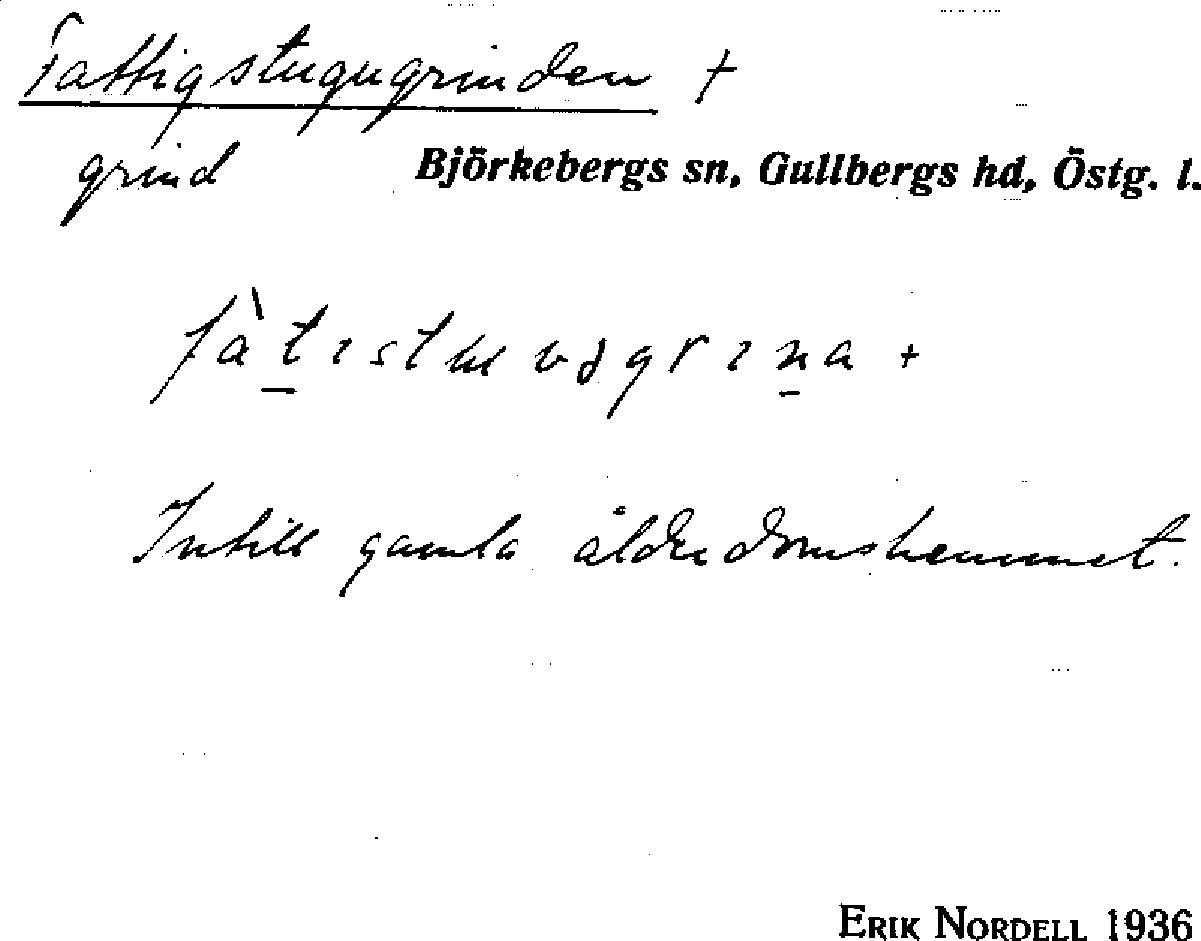 Fattigstugugrinden +
grind Björkebergs sn, Gullbergs hd, Östg. l.
Intill gamla ålderdomshemmet.
ERIK NORDELL 1936